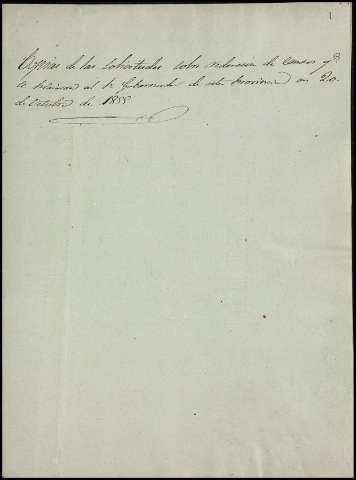 1
Copias de las solicitudes sobre redencion de Censos q.e
se dirigieron al Sr Gobernador de esta Provincia en 20.
de Octubre de 1855